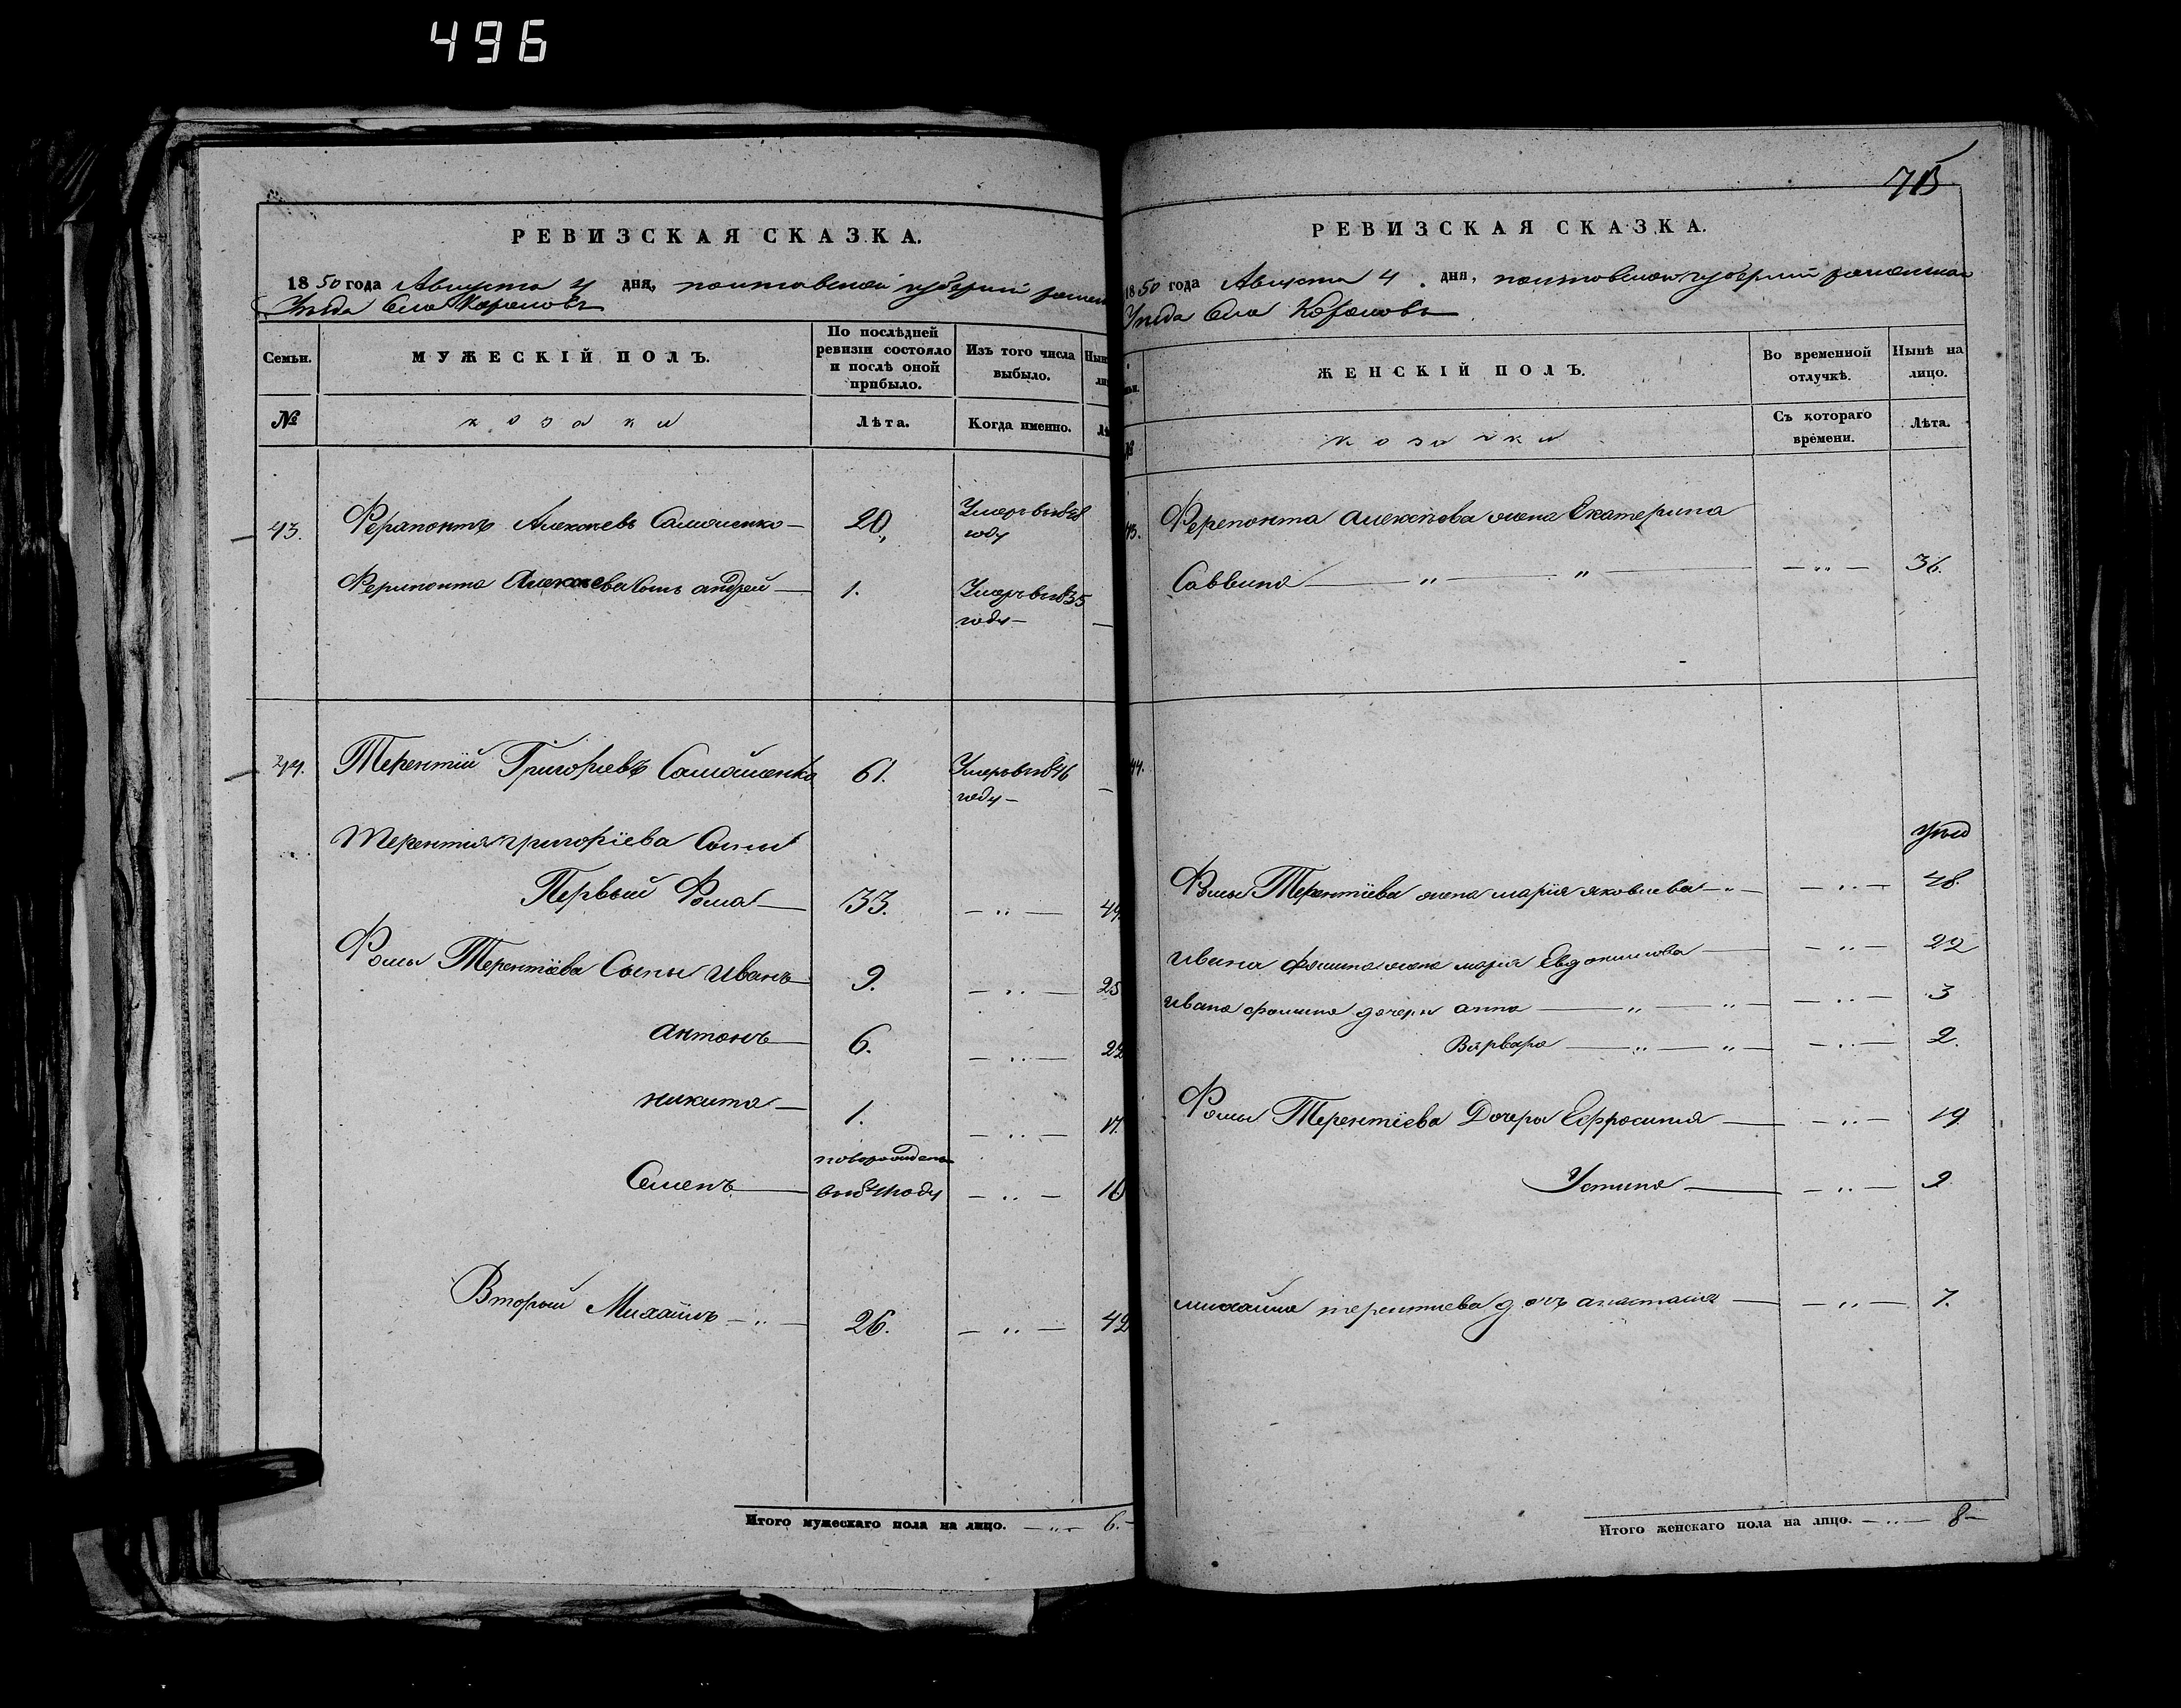 496
РЕВИЗСКАЯ СКАЗКА.
1850 года Августа 4 дня, полтавской губерніи ромен
Уезда Села Коровова
Семьи. МУЖЕСКІЙ ПОЛЪ. По послѣдней ревизіи состояло и послѣ оной прибыло. Изъ того числа выбыло. Нын
№ козаки Лѣта. Когда именно. Лѣ
43. Ферапонтъ Алексѣевъ Самойленко 20. Умеръ в 1848 году
Ферапонта Алексѣева сынъ андрей 1. Умеръ в 1835 году
44. Терентій Григорьевъ Самойленко 61. Умеръ в 1846 году
Терентія григоріева Сыны
Первый Фома 33. 49.
Фомы Терентіева Сыны иванъ 9. 25
антонъ 6. 22
никита 1. 17.
Семенъ новорожденъ в 1834 году 16
Второй Михайло 26. 42
Итого мужескаго пола на лицо. 6.
715
РЕВИЗСКАЯ СКАЗКА.
1850 года Августа 4 дня, полтовской губерніи роменскаго
Уезда Села Коровова
ЖЕНСКІЙ ПОЛЪ. Во временной отлучкѣ. Нынѣ на лицо.
№ козачки Съ котораго времени. Лѣта.
43. Ферапонта алексѣева жена Екатерина
Саввина 36.
44.
Фомы Терентіева жена марія яковлева 48.
ивана фомина жена марія Евдокимова 22
ивана фомина дочери анна 3
Варвара 2.
Фомы Терентіева Дочери Ефросинія 19
Устина 9
михайла терентиева дочь анастасия 7.
Итого женскаго пола на лицо. 8